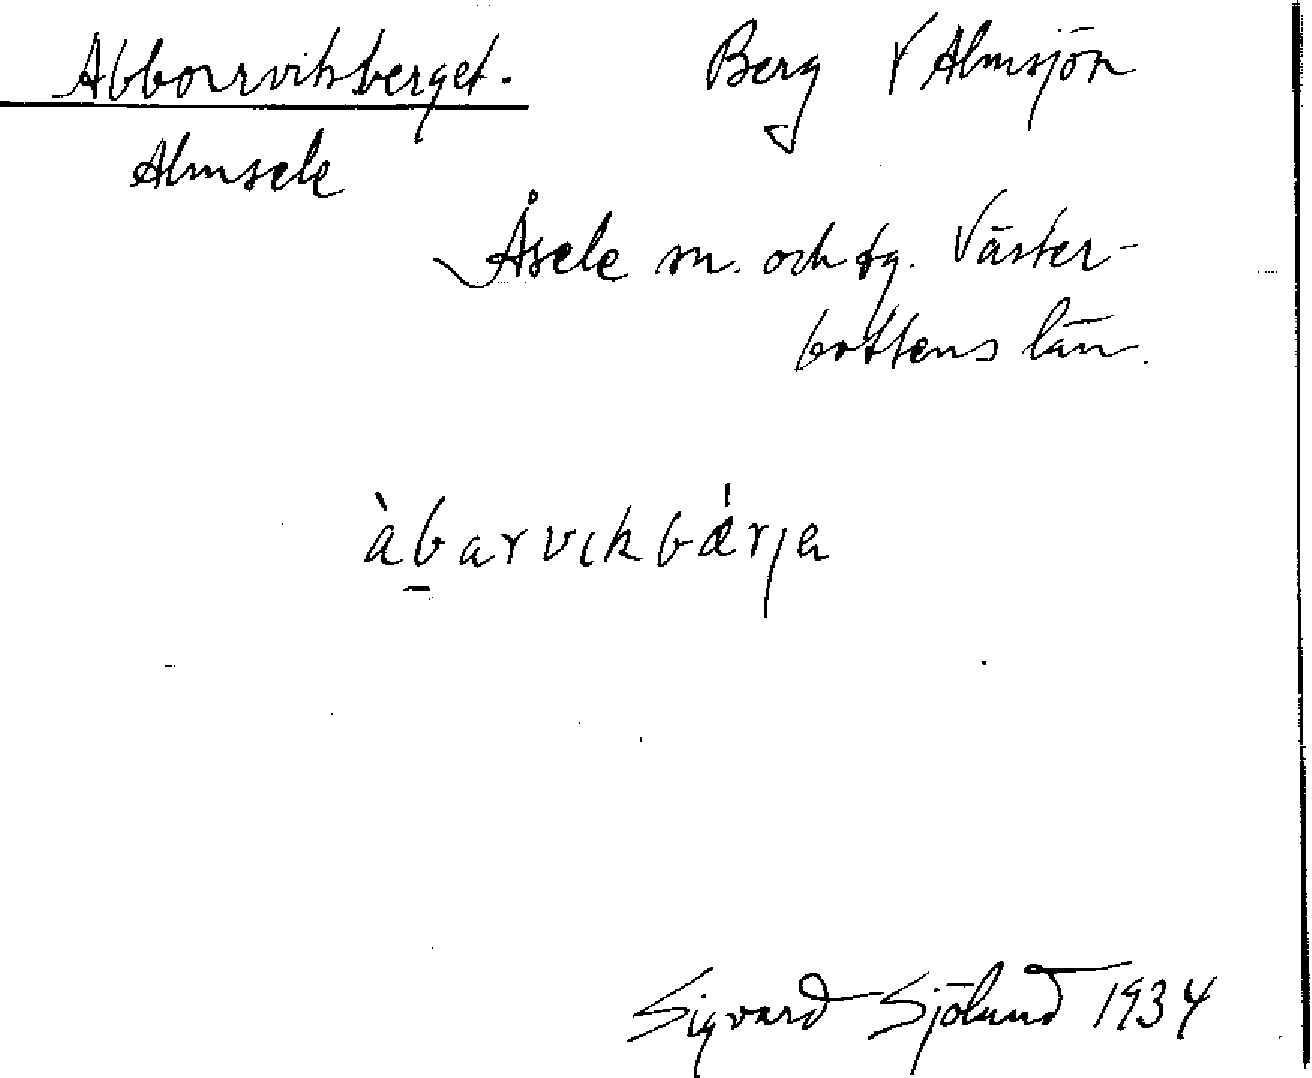 Abborrviksberget. Berg V Almsjön
Almsele
Åsele sn. och tg. Väster-
bottens län.
àb̲arvikbǽrja
Sigvard Sjölund 1934